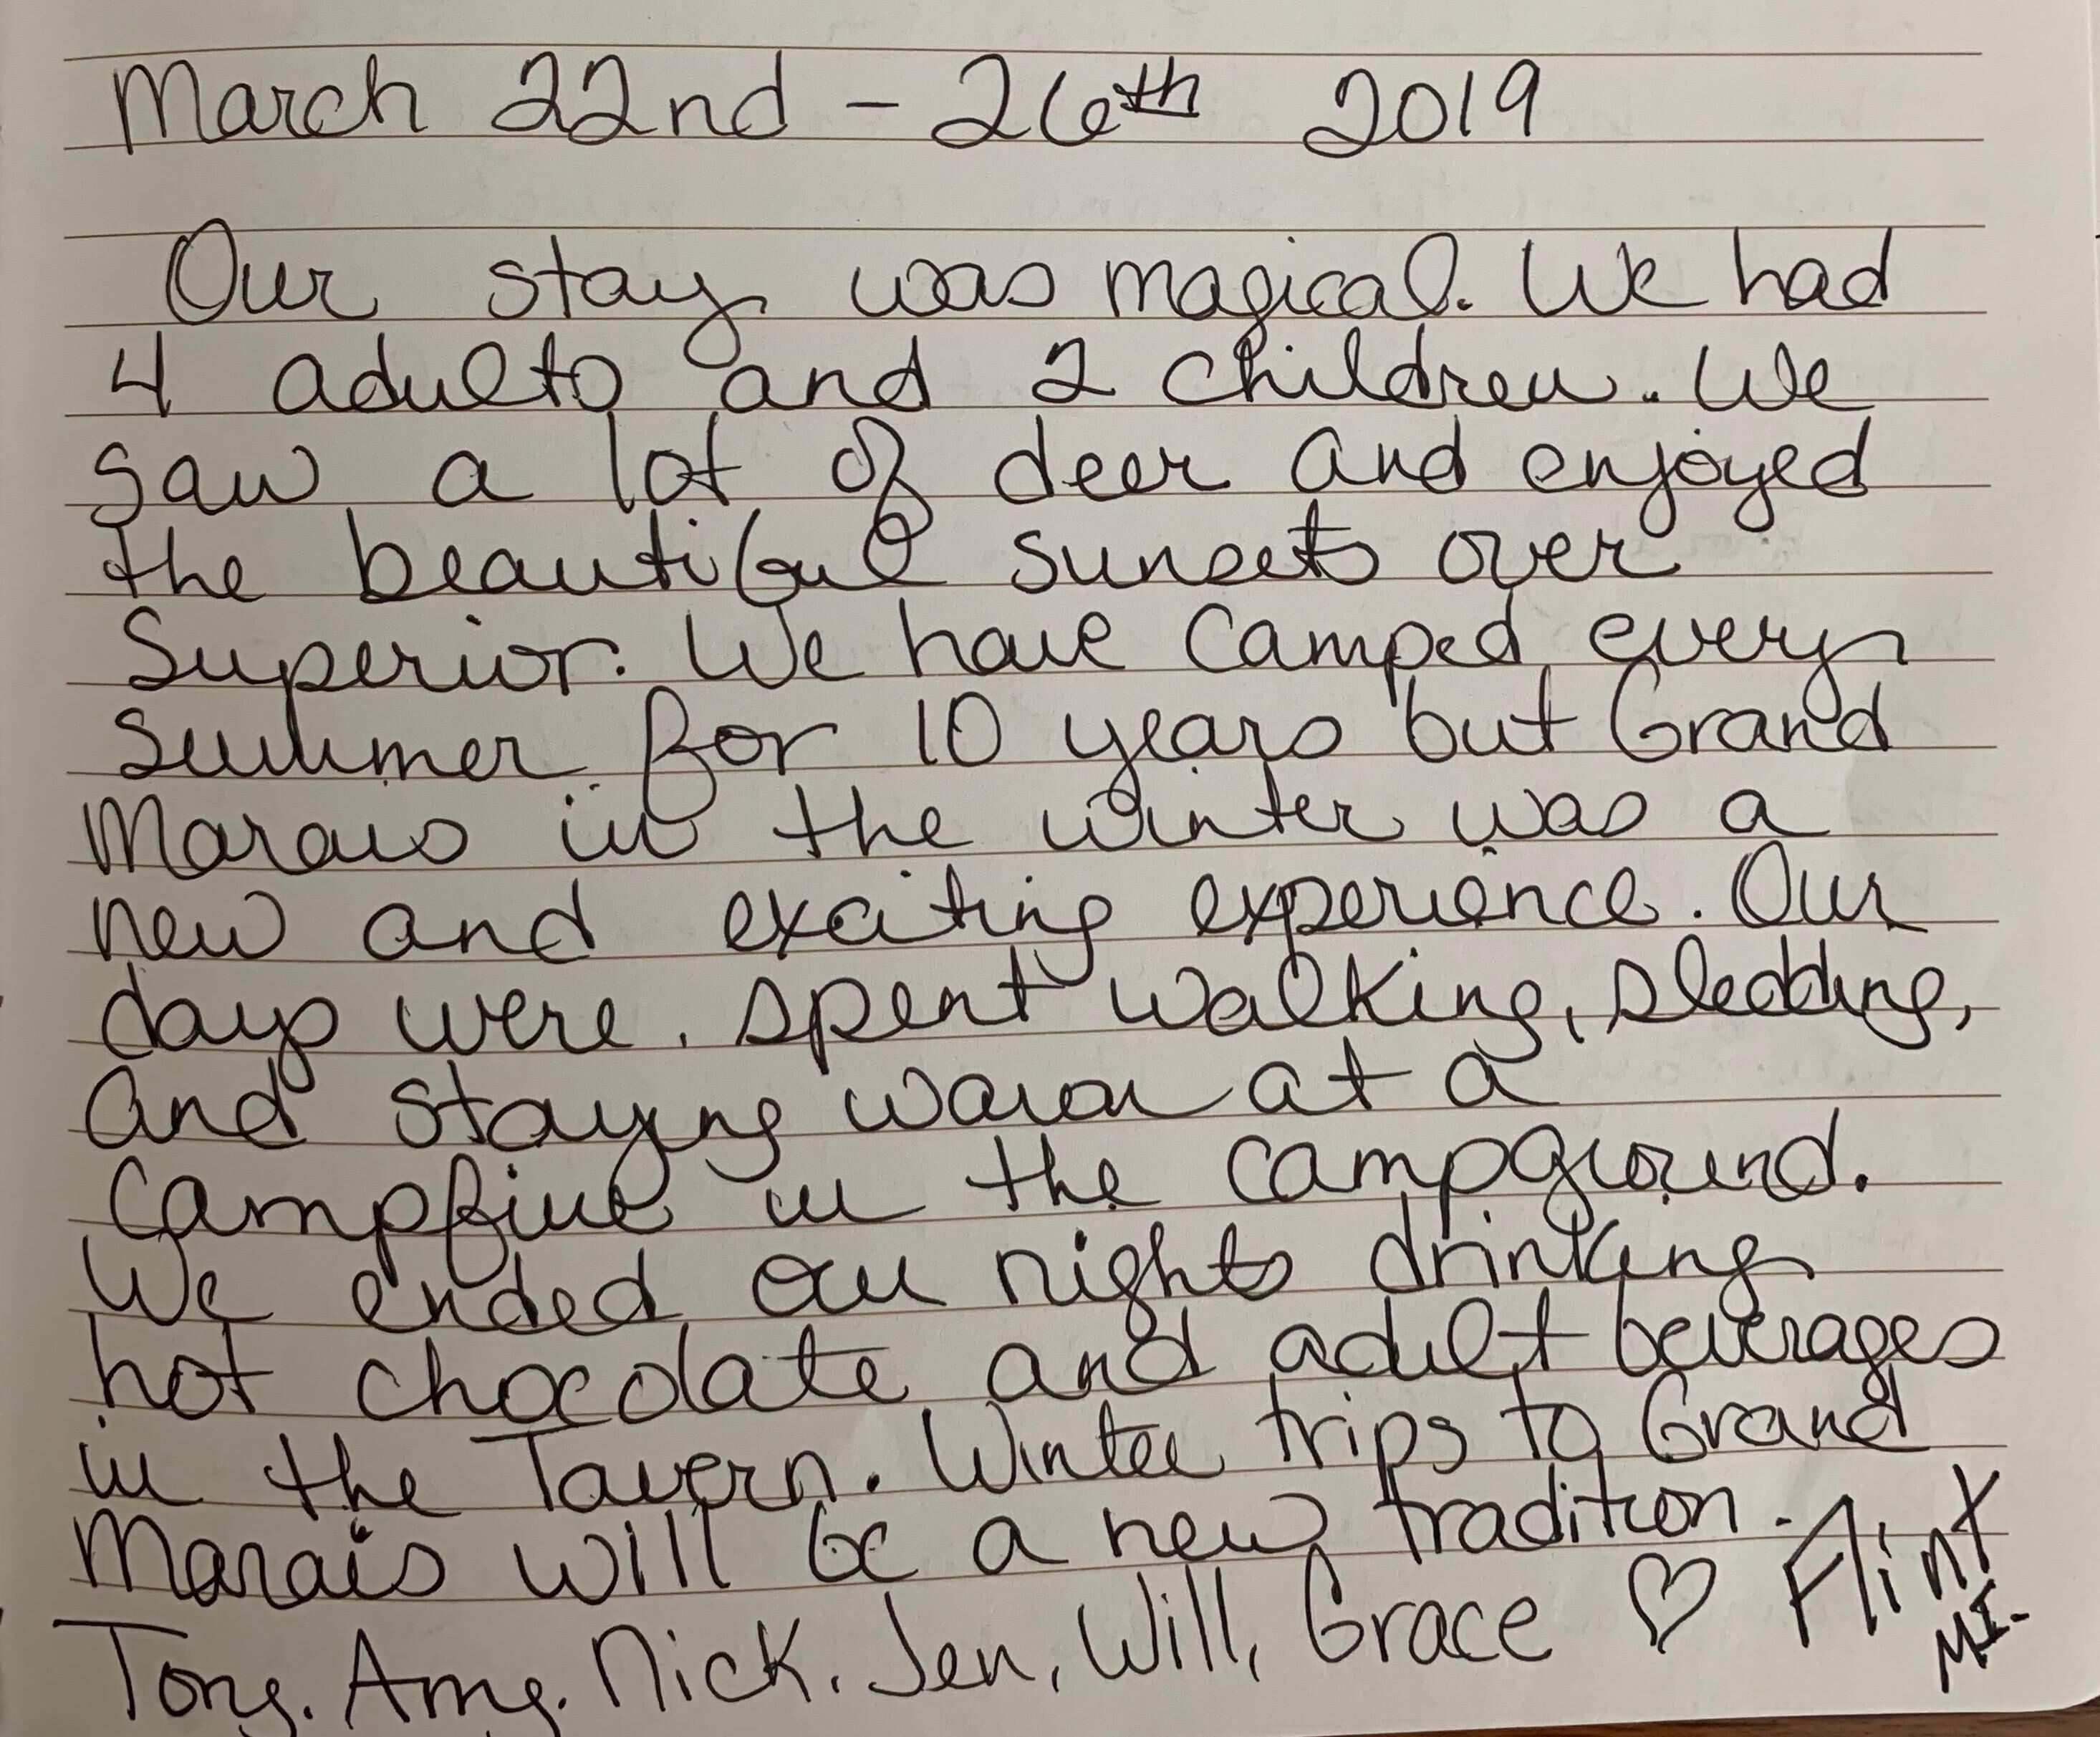 March 22nd - 26th 2019
Our stay was magical. We had
4 adults and 2 children. We
saw a lot of deer and enjoyed
the beautiful sunsets over
Superior. We have camped every
summer for 10 years but Grand
Marais in the winter was a
new and exciting experience. Our
days were spent walking, sledding,
and staying warm at a
campfire in the campground.
We ended our nights drinking
hot chocolate and adult beverages
in the Tavern. Winter trips to Grand
Marais will be a new tradition.
Tony. Amy. Nick. Jen, Will, Grace ♡ Flint
MI.